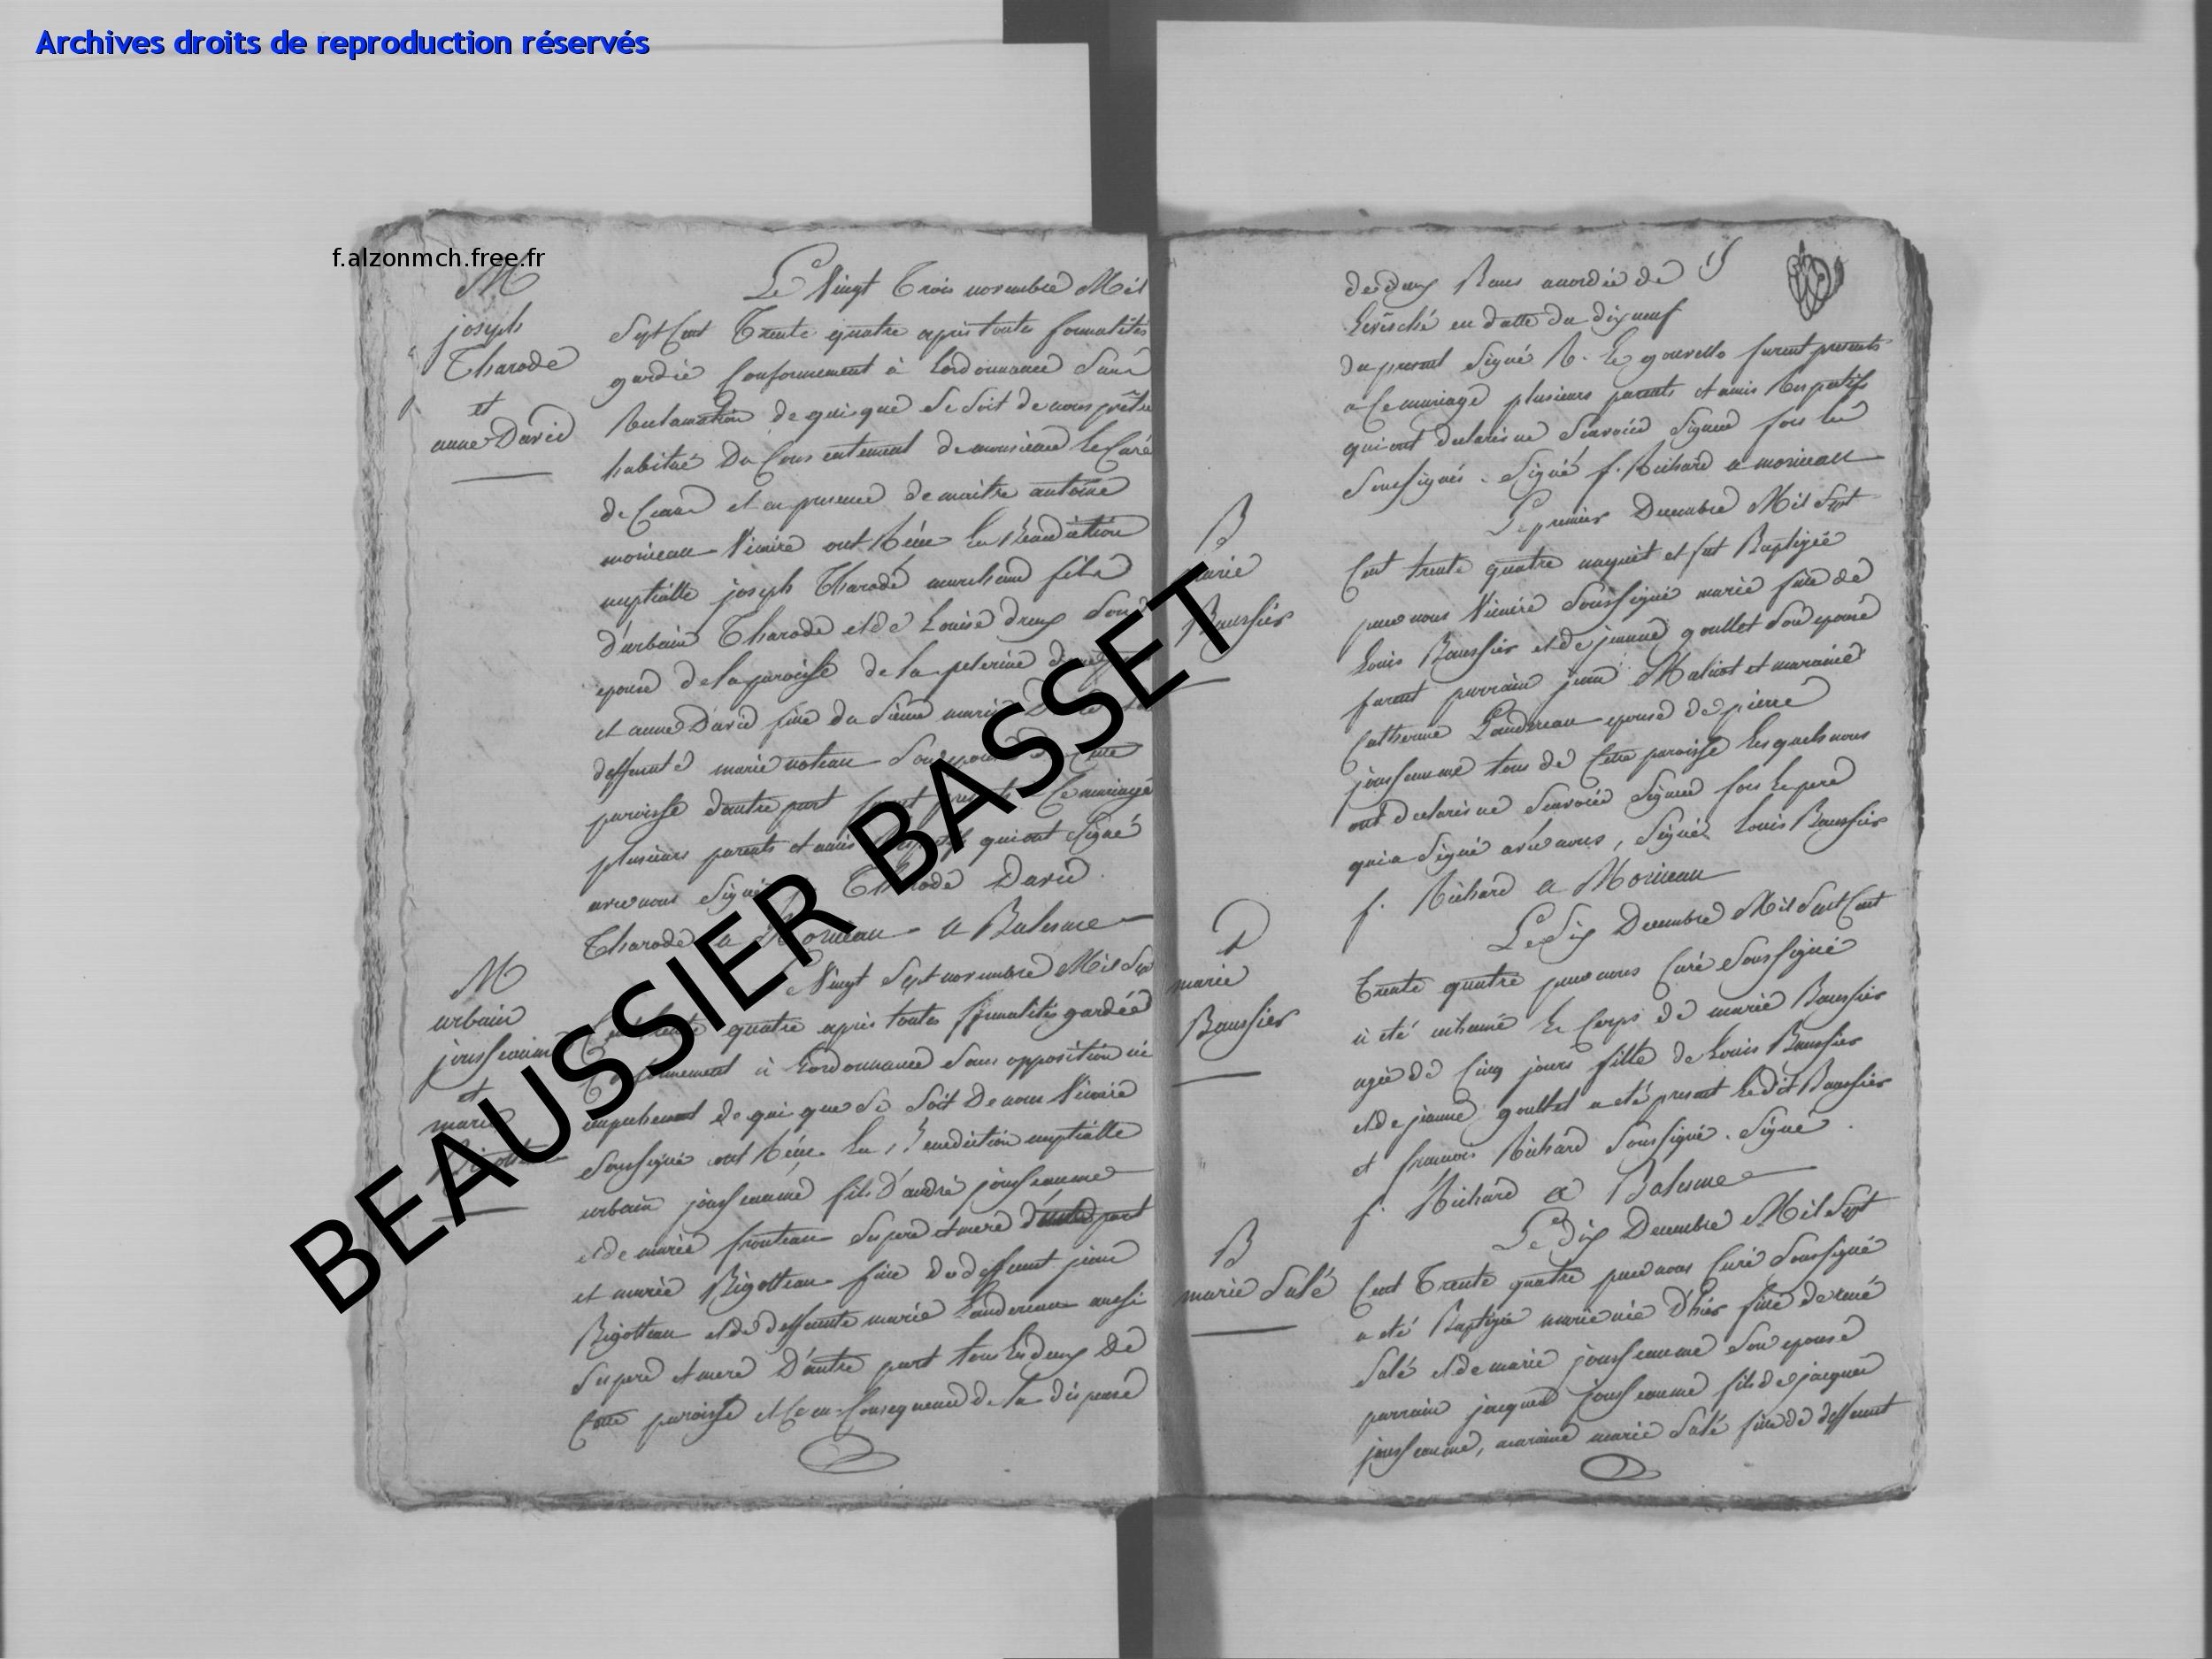 Archives droits de reproduction réservés
f.alzonmch.free.fr
BEAUSSIER BASSET
M
joseph
Tharode
et
anne David
Le Vingt Trois novembre Mil
Sept Cent Trente quatre apres toutes formalités
gardée Conformement à Lordonnance Sans
Reclamation de qui que Se Soit de nous prêtre
habitué Du Consentement de monsieur Le Curé
de et en presence de maitre antoine
moriceau Vicaire ont la Benediction
nuptialle joseph Tharode marchand fils
d'urbain Tharode et de Louise dreux Son
epouse de la paroisse de la pelerine
et anne David fille du Sieur
deffunte marie noteau Son epouse Cette
paroisse dautre part furent presents Ce mariage
plusieurs parents et amis qui ont Signé
avec nous Signé Tharode David
Tharode a Moriceau a Balesme
M
urbain
jousseaume
et
marie
Vingt Sept novembre Mil Sept
Cent trente quatre après toutes formalités gardée
Conformement à Lordonnance Sans opposition ni
empechement de qui que Se Soit De nous Vicaire
Soussigné ont La Benediction nuptialle
urbain jousseaume fils D'andré jousseaume
et de marie fronteau Ses pere et mere part
et marie Bigotteau fille du deffunt jean
Bigotteau et de deffunte marie Landereau aussi
Ses pere et mere D'autre part tous Les deux De
Cette paroisse et Ce en Consequence de La dispense
des deux Bans accordée de
Levêsché en datte du dix neuf
du present Signé R. Le gouvello furent presents
a Ce mariage plusieurs parents et amis Respectifs
qui ont declaré ne Scavoire Signer fors les
Soussignés. Signé f. Richard a moriceau
B
marie
Baussier
Le premier Decembre Mil Sept
Cent trente quatre naquit et fut Baptizée
par nous Vicaire Soussigné marie fille de
Louis Baussier et de jeanne goullet Son epouse
furent parrain jean Malicot et maraine
Catherine Landereau epouse de pierre
jousseaume tous de Cette paroisse Lesquels nous
ont declaré ne Scavoire Signer fors Le pere
qui a Signé avec nous, Signé Louis Baussier
f. Richard a Moriceau
marie
Baussier
Le Six Decembre Mil Sept Cent
Trente quatre par nous Curé Soussigné
a été inhumé Le Corps de marie Baussier
agée de Cinq jours fille de Louis Baussier
et de jeanne goullet a été present Ledit Baussier
et francois Richard Soussigné. Signé.
f. Richard a Balesme
B
marie Salé
Le Dix Decembre Mil Sept
Cent Trente quatre par nous Curé Soussigné
a été Baptizée marie née D'hier fille de rené
Salé et de marie jousseaume Son epouse
parrain jacques jousseaume fils de jacques
jousseaume, maraine marie Salé fille de deffunt